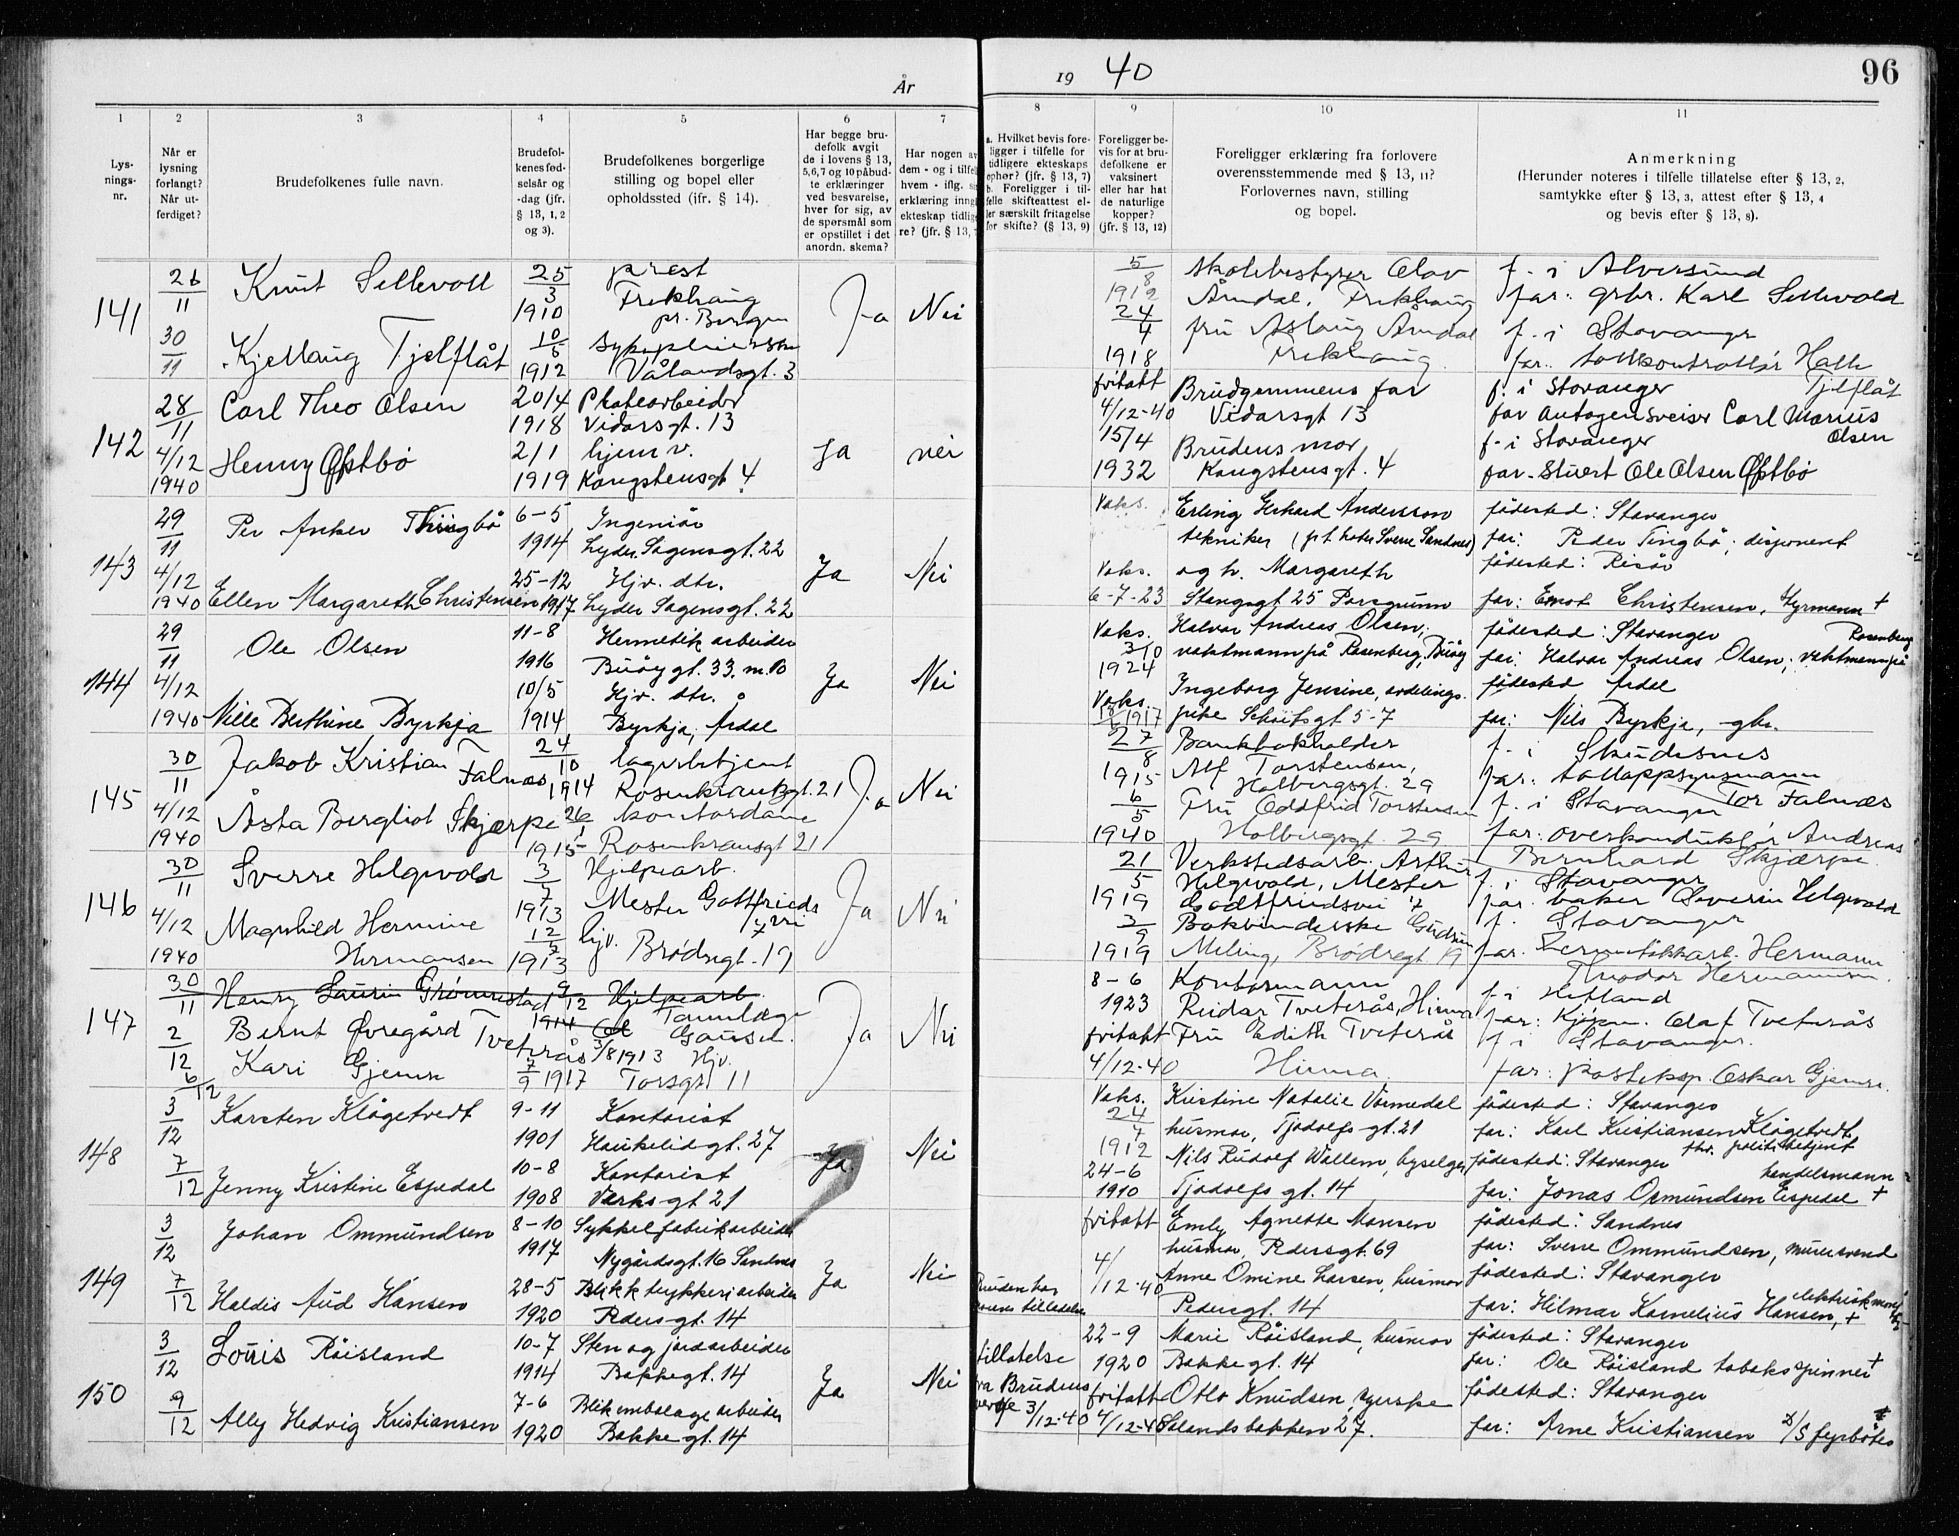 År 19 40
96
1 2 3 4 5 6 7 8 9 10 11
Lys-
nings-
nr.
Når er
lysning
forlangt?
Når ut-
ferdiget?
Brudefolkenes fulle navn.
Brudefol-
kenes fød-
selsår og
-dag (jfr.
§ 13, 1, 2
og 3).
Brudefolkenes borgerlige
stilling og bopel eller
opholdssted (ifr. § 14).
Har begge bru-
defolk avgit
de i lovens § 13,
5,6,7 og 10 påbud-
te erklæringer
ved besvarelse,
hver for sig, av
de spørsmål som
er opstillet i det
anordn. skema?
Har nogen av
dem - og i tilfel
hvem - iflg. s
erklæring inng
ekteskap tidlig
re? (jfr. § 13,
a. Hvilket bevis fore-
ligger i tilfelle for
tidligere ekteskaps
ophør? (jfr. § 13, 7)
b. Foreligger i til-
felle skifteattest el-
ler særskilt fritagelse
for skifte? (§ 13, 9)
Foreligger be-
vis for at bru-
defolkene er
vaksinert
eller har hat
de naturlige
kopper?
(jfr. § 13, 12)
Foreligger erklæring fra forlovere
overensstemmende med § 13, 11?
Forlovernes navn, stilling
og bopel.
Anmerkning
(Herunder noteres i tilfelle tillatelse efter § 13, 2,
samtykke efter § 13, 3, attest efter § 13, 4
og bevis efter § 13, 8).
141
26/11
Knut Sellevoll
25/3 1910
prest
Frekhaug
pr. Bergen
Ja
Nei
5/8 1912
Skolebestyrer Olav
Årmdal, Frekhaug
f. i Alversund
far: grbr. Karl Sellevold
30/11
Kjellaug Tjelflåt
10/5 1912
Sykepleierske
Vålandsgt. 3
24/4 1918
fru Aslaug Årmdal
Frekhaug
f. i Stavanger
far: tollkontrollør Halle
Tjelflåt
142
28/11
Carl Theo Olsen
20/4 1918
Platearbeider
Vidarsgt. 13
Ja
nei
fritatt
4/12-40
Brudgommens far
Vidarsgt 13
f. i Stavanger
far Autogensveiser Carl Marius
Olsen
4/12 1940
Henny Østbø
2/1 1919
hjemv.
Kongstensgt 4
15/4 1932
Brudens mor
Kongstensgt. 4
f. i Stavanger
far. Stuert Ole Olsen Østbø
143
29/11
Per Anker Tingbø
6-5 1914
Ingeniør
Lyder Sagensgt. 22
Ja
Nei
Vaks.
Erling Gerhard Anderssom
tekniker (p.t. hotel Sverre Sandnes)
fødested: Stavanger
far: Peder Tingbø, disponent
4/12 1940
Ellen Margareth Christensen
25-12 1917
Hjv. dtr.
Lyder Sagensgt. 22
Vaks.
6-7-23
og h. Margareth
Stangsgt 25 Porsgrunn
fødested: Risør
far: Christensen, styrmann +
144
29/11
Ole Olsen
11-8 1916
Hermetik arbeider
Buøygt. 33.
Ja
Nei
Vaks.
3/10 1924
Halvor Andreas Olsen,
vaktmann på Rosenberg, Buøy
fødested: Stavanger
far: Halvor Andreas Olsen, vaktmann på
Rosenberg
4/12 1940
Nille Berthine Byrkja
10/5 1914
Hjv. dtr.
Byrkja, Årdal
Vaks.
1917
Ingeborg Jensine, avdelings.
pike Schiötsgt 5-7
fødested Årdal
far: Nils Byrkja, gbr.
145
30/11
Jakob Kristian Falnæs
24/10 1914
lagerbetjent
Rosenkrantzgt. 21
Ja
Nei
27/8 1915
Bankbokholder
Alf Torstensen,
Holbergsgt. 29
f. i Skudesnes
far: tolloppsynsmann
Tor Falnæs
4/12 1940
Åsta Bergliot Skjærpe
26/1 1915
kontordame
Rosenkransgt 21
6/5 1940
Fru Oddfrid Torstensen
Holbergsgt. 29
f. i Stavanger
far. overkonduktør Andreas
Bernhard Skjærpe
146
30/11
Sverre Helgevold
3/7 1913
Hjelpearb.
Mester Gottfrieds
vei 7
Ja
Nei
21/5 1919
Verkstedsarb. Arthur
Helgevold, Mester
Godtfriedsvei 7
f. i Stavanger
far. baker Severin Helgevold
4/12 1940
Magnhild Hermine
Hermansen
12/7 1913
hjv.
Brødregt. 19
3/9 1919
Bokbinderske Gudrun
Meling, Brødregt 19
f. Stavanger
far. Hermetikkarb. Hermann
Theodor Hermansen
147
30/11
Henry Laurin Grønnestad
9/12 1914
Hjelpearb.
2/12
Bernt Øvregård Tveterås
3/8 1913
Tannlæge
Gausel.
Ja
Nei
8-6 1923
Kontormann
Reidar Tveterås, Hinna
f. i Hetland
far: Kjøpm. Olaf Tveterås
6/12
Kari Gjemre
7/9 1917
Hjv.
Torsgt 11
fritatt
4/12-40
Fru Edith Tveterås
Hinna
f i Stavanger.
far: posteksp. Oskar Gjemre.
148
3/12
Karsten Klågetvedt
9-11 1901
Kontorist
Haukelidgt. 27
Ja
Nei
Vaks.
24/4 1912
Kristine Natalie Vormedal
husmor, Tjodolfs-gt. 21
fødested: Stavanger
far: Karl Kristiansen Klågetvedt
fhv. politibetjent
7/12
Jenny Kristine Espedal
10-8 1908
Kontorist
Verksgt 21
24-6 1910
Nils Rudolf Wallem, byselger
Tjodolfs gt. 14
fødested: Stavanger
handelsmann
far: Jonas Osmundsen Espedal +
149
3/12
Johan Ommundsen
8-10 1917
Sykkelfabrikarbeider
Nygårdsgt. 16 Sandnes
Ja
Nei
fritatt
Emly Agnethe Monsen
husmor, Pedersgt. 69
fødested: Sandnes
far: Sverre Ommundsen, murersvend
7/12
Haldis Aud Hansen
28-5 1920
Blikktrykkeriarbeider
Pedersgt. 14
Bruden har
tillatelse
4/12-40
Anne Omine Larsen, husmor
Pedersgt. 14
fødested: Stavanger
far: Hilmar Kornelius Hansen, +
150
3/12
Louis Røisland
10-7 1914
Sten og jordarbeider
Bakkegt. 14
Ja
Nei
22-9 1920
Marie Røisland, husmor
Bakkegt. 14
fødested: Stavanger
far: Ole Røisland tobakspinner +
9/12
Ally Hedvig Kristiansen
7-6 1920
Blikemballage arbeider
Bakkegt. 14
tillatelse
fra Brudens
verge 3/12-40
fritatt
4/12-40
Otto Knudsen, syerske
Solandsbakken 27.
fødested: Stavanger
far: Arne Kristiansen D/S fyrbøter +